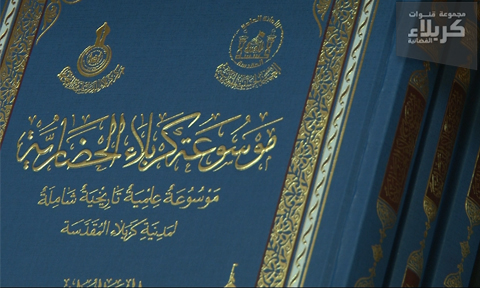 مجموعة قنوات
كربلاء
الفضائية
مَوْسُوعَة كَرْبَلَاء الحَضَارِيَّة
مَوْسُوعَةٌ عِلْمِيَّةٌ تَارِيْخِيَّةٌ شَامِلَةٌ
لِمَدِيْنَةِ كَرْبَلَاءِ المُقَدَّسَةِ